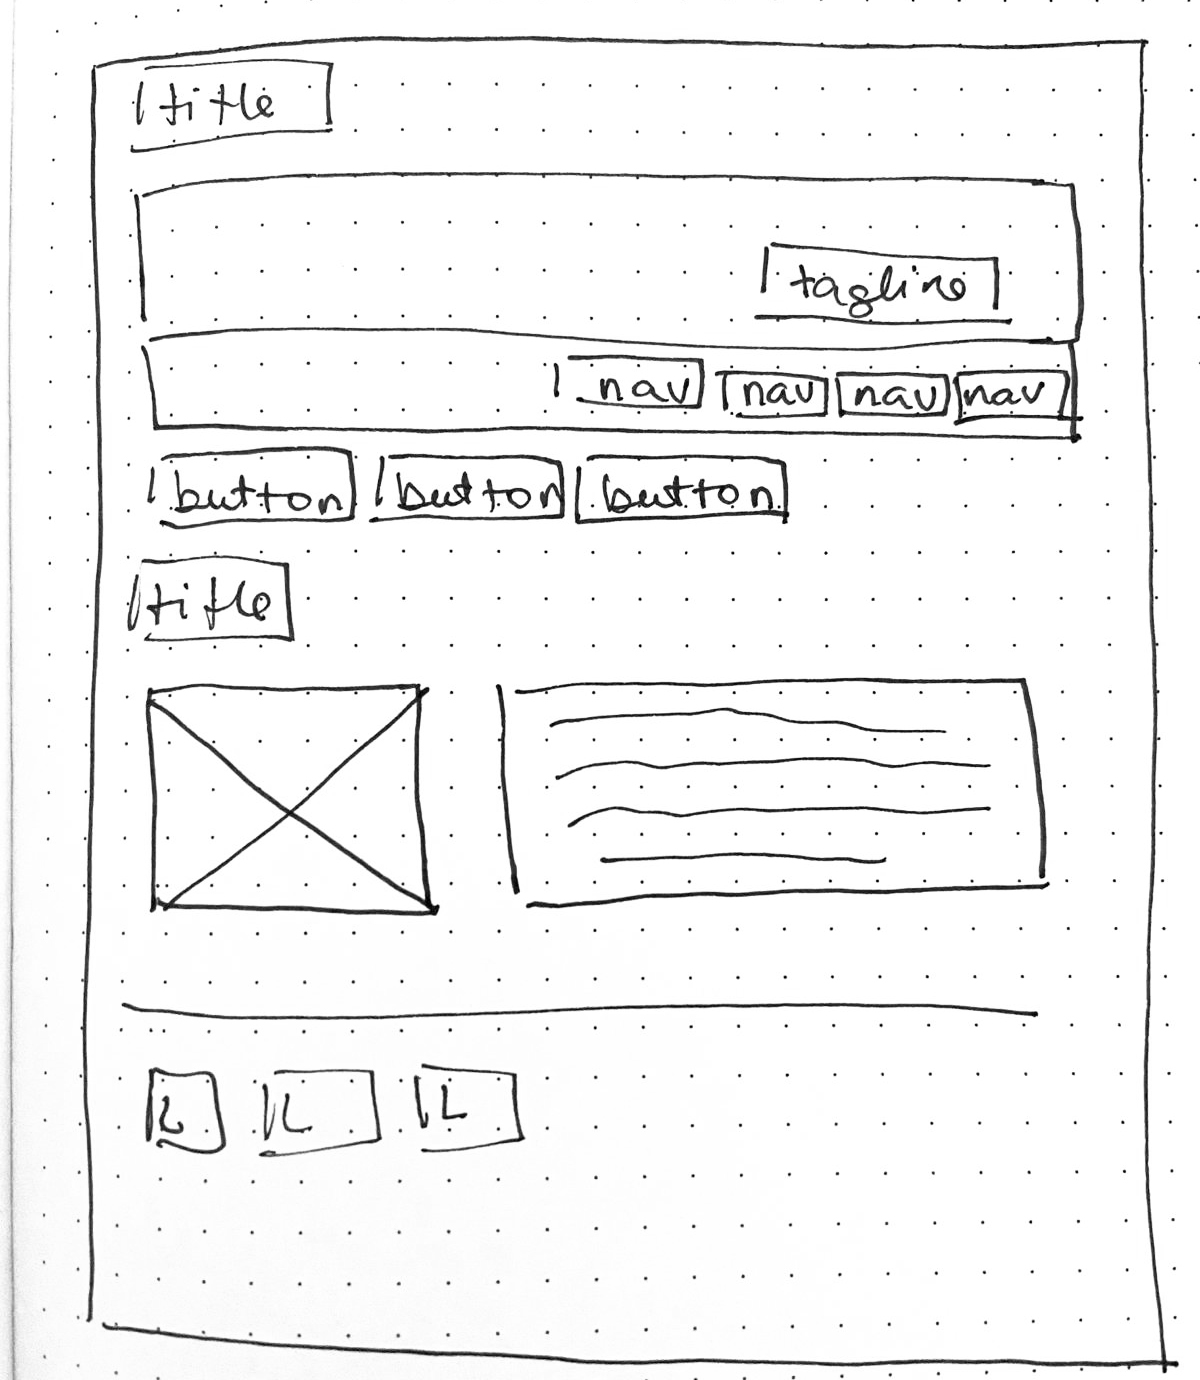 title
tagline
nav nav nav nav
button button button
title
L L L